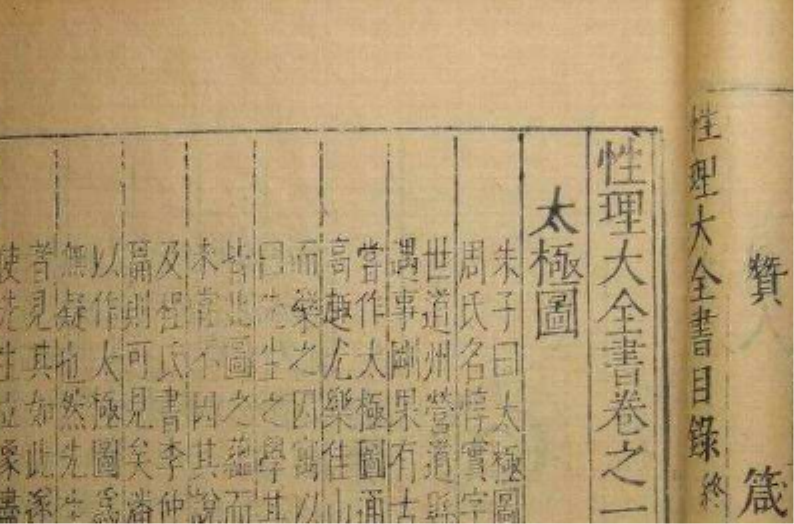 贊 箴
性理大全書目錄終
性理大全書卷之一
太極圖
朱子曰太極圖
周氏名惇實字
世道州營道縣
遇事剛果有古
嘗作太極圖通
高趣尤樂佳山
而樂之因寓以
曰先生之學其
皆此圖之蘊而
未嘗不因其說
及程氏書李仲
篇則可見矣潘
以作太極圖爲
無疑也然先生
者見其如此遂
使先生立象盡